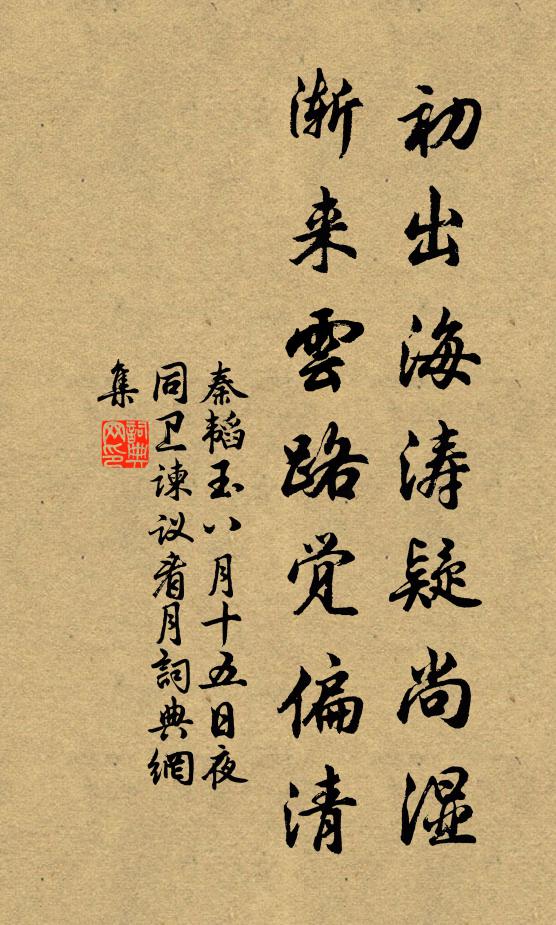 初出海涛疑尚湿
渐来雲路觉偏清
秦韬玉八月十五日夜
同卫諫议看月詞典網
集
詞典
网印